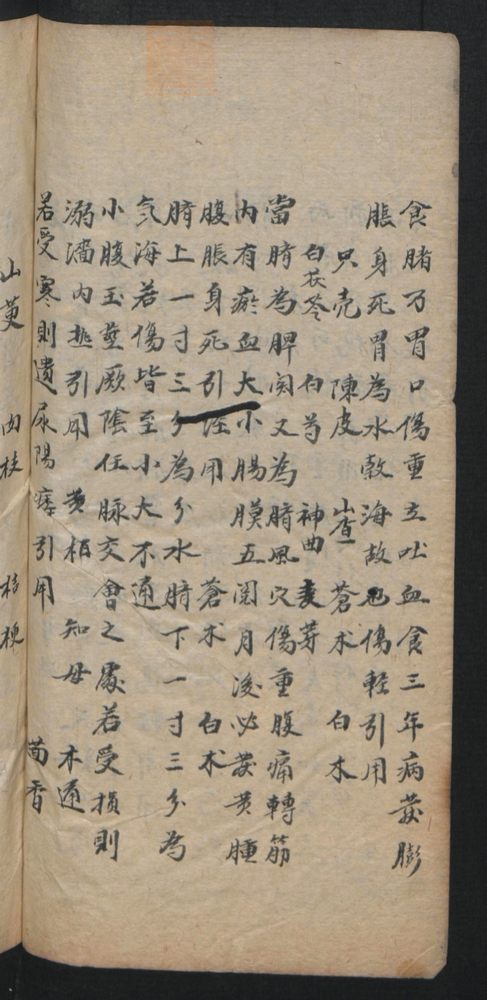 食腑乃胃口傷重立吐血食三年病發膨
脹身死胃為水敎海故也傷輕引用
只壳 陳皮 山查 蒼术 白术
白茯苓 白芍 神曲 麦芽
當臍為脾関又為臍風穴傷重腹痛轉筋
内有瘀血大小腸膜五個月後必發黄腫
腹脹身死引經用 蒼术 白术
臍上一寸三分為分水臍下一寸三分為
氣海若傷皆至小大不通
小腹玉莖厥陰任脉交會之處若受損則
溺濇内熱引用 黄柏 知母 木通
若受寒則遺尿陽痿引用 茴香
山萸 肉桂 桔梗